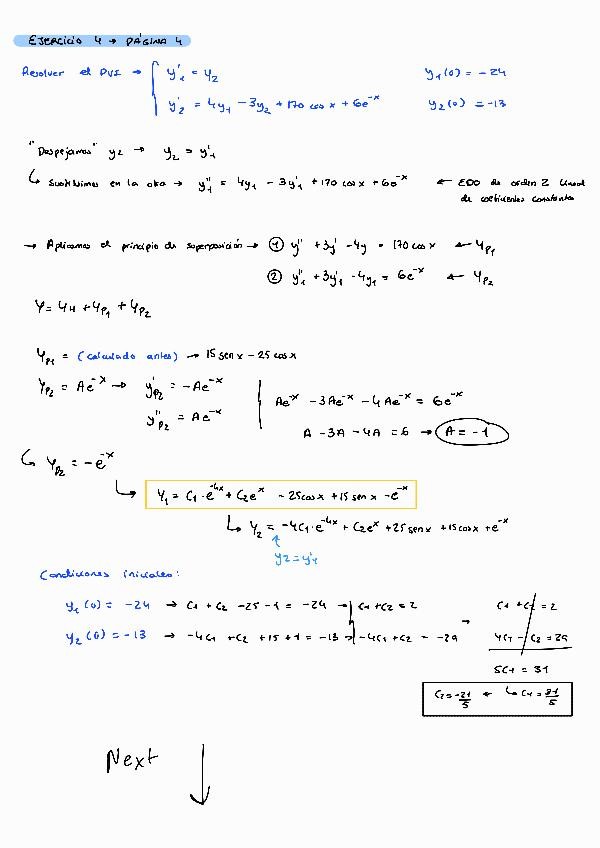 EJERCICIO 4 → PÁGINA 4
Resolver el PVI → { y'₁ = y₂ y₁(0) = -24
y'₂ = 4y₁ - 3y₂ + 170 cos x + 6e^-x y₂(0) = -13
"Despejamos" y2 → y₂ = y'₁
↳ Sustituimos en la otra → y''₁ = 4y₁ - 3y'₁ + 170 cos x + 6e^-x ← EDO de orden 2 lineal
de coeficientes constantes
→ Aplicamos el principio de superposición → ① y'' + 3y' - 4y = 170 cos x ← y_P1
② y''₁ + 3y'₁ - 4y₁ = 6e^-x ← y_P2
Y = y_H + y_P1 + y_P2
y_P1 = (calculado antes) → 15 sen x - 25 cos x
y_P2 = Ae^-x → y'_P2 = -Ae^-x | Ae^-x - 3Ae^-x - 4Ae^-x = 6e^-x
y''_P2 = Ae^-x | A - 3A - 4A = 6 → A = -1
↳ y_P2 = -e^-x
↳ y₁ = C1·e^-4x + C2e^x - 25cos x + 15 sen x - e^-x
↳ y₂ = -4C1·e^-4x + C2e^x + 25 sen x + 15 cos x + e^-x
↑
y2 = y'1
Condiciones iniciales:
y₁(0) = -24 → C1 + C2 - 25 - 1 = -24 → C1 + C2 = 2 → C1 + C2 = 2
y₂(0) = -13 → -4C1 + C2 + 15 + 1 = -13 → -4C1 + C2 = -29 4C1 - C2 = 29
5C1 = 31
C2 = -21/5 ← ↳ C1 = 31/5
Next ↓